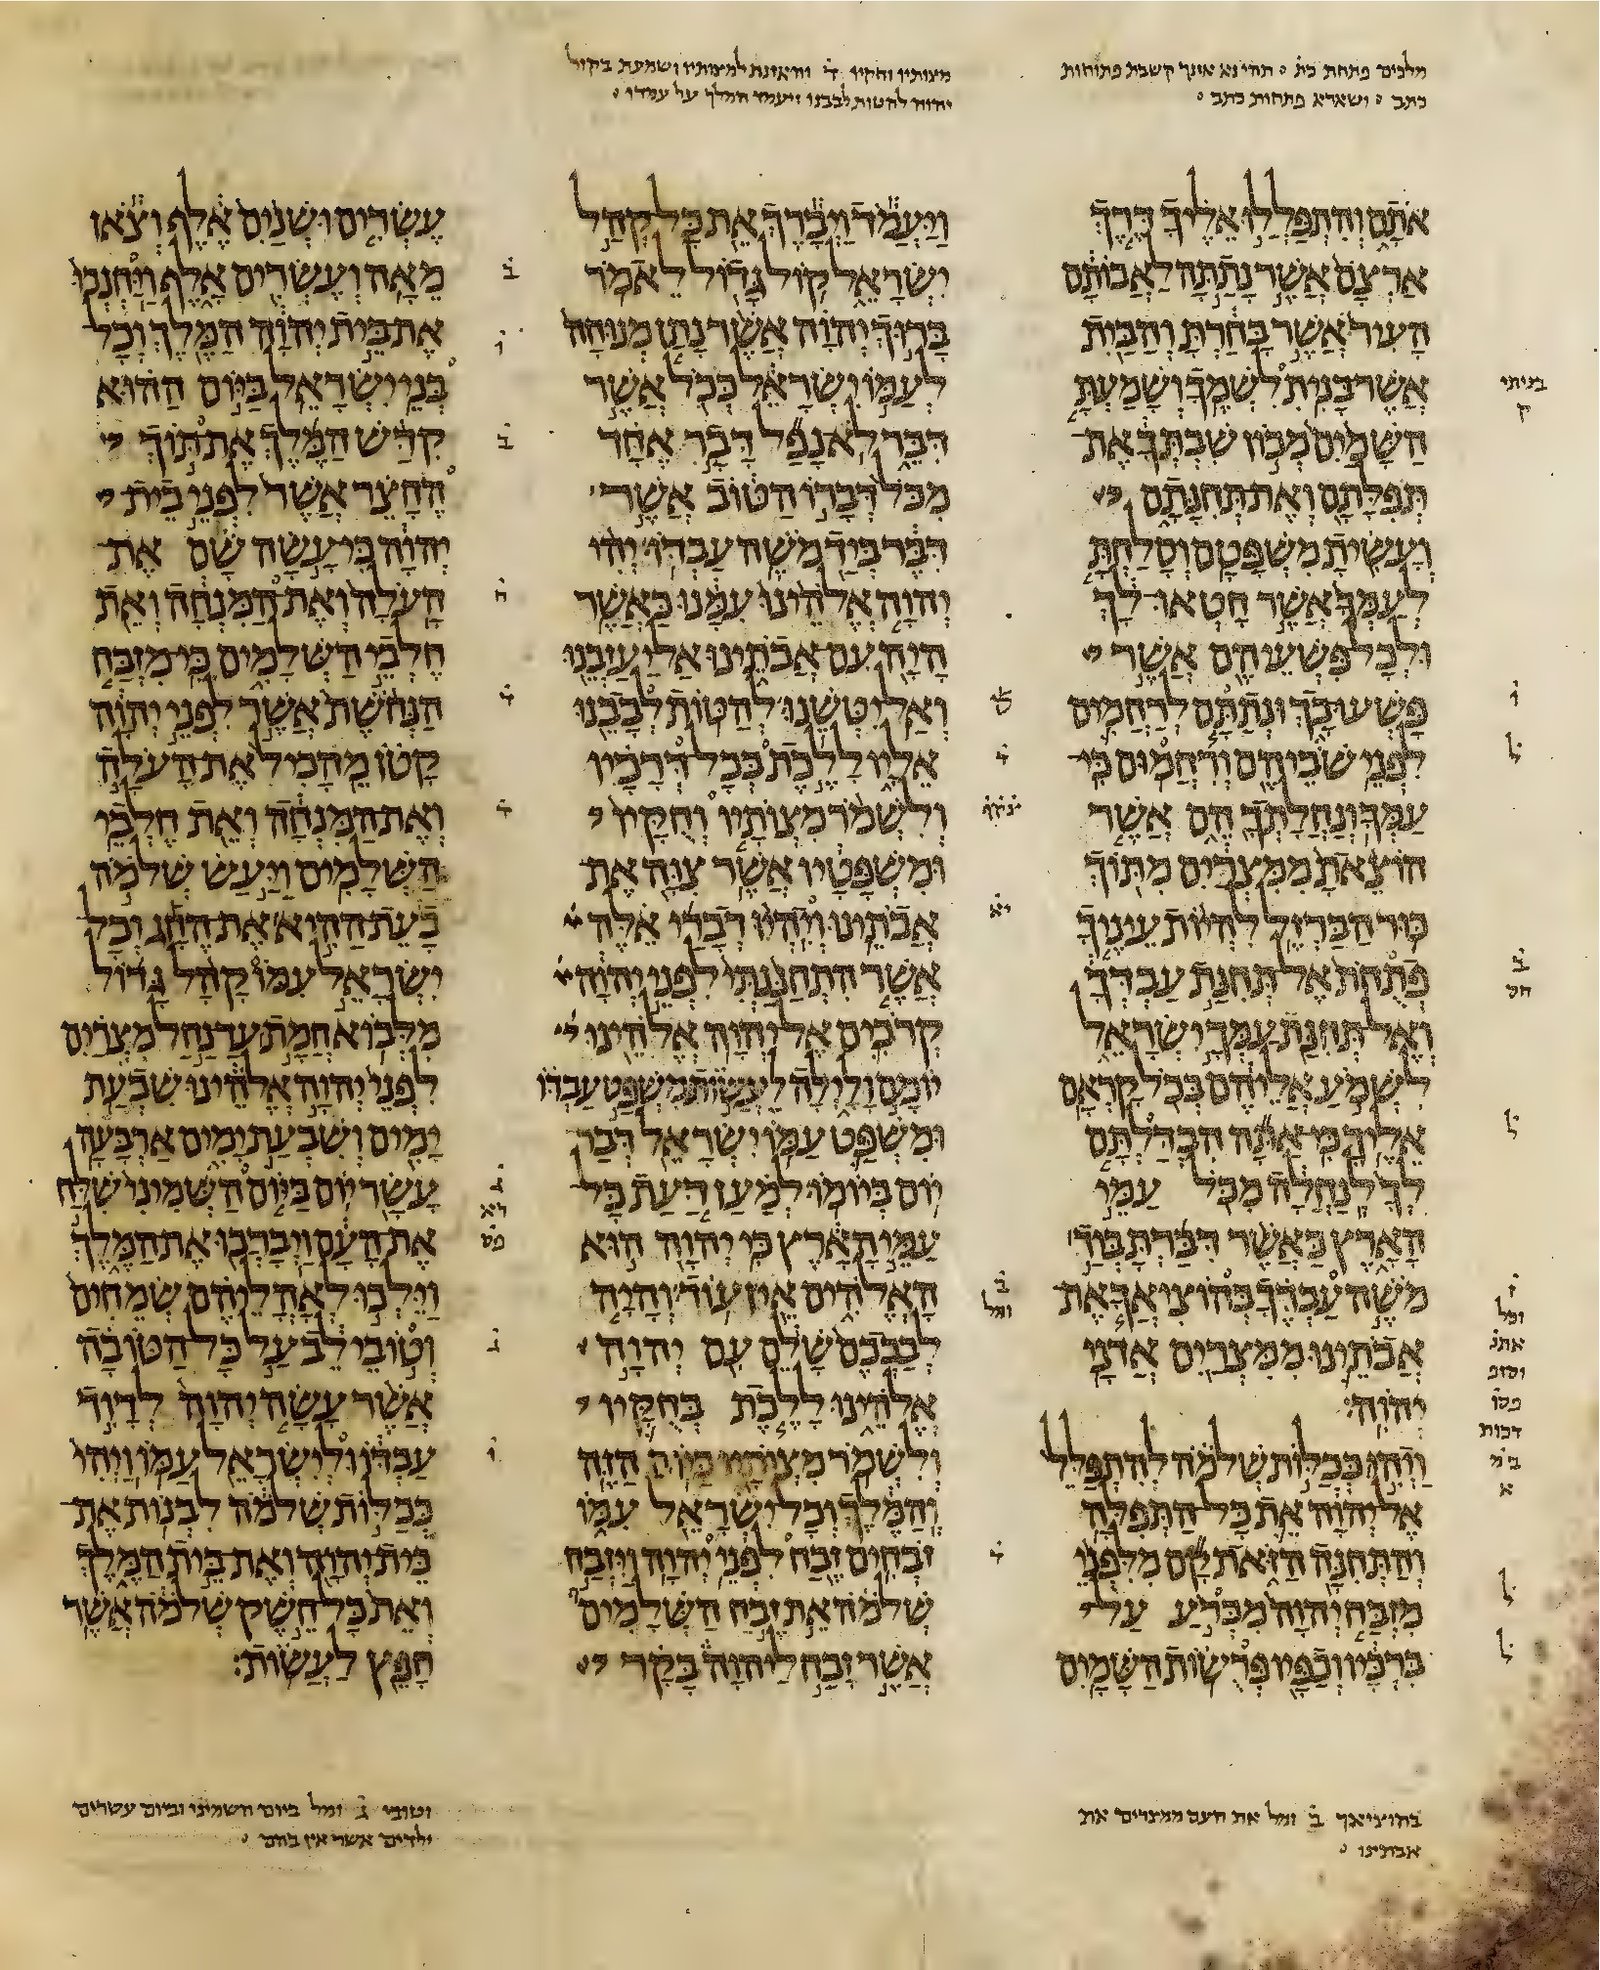 מלכים פתחת כת תהי נא אזנך קשבת פתוחות
כתב ושארא פתחות כתב
אתם והתפללו אליך דרך
ארצם אשר נתתה לאבותם
העיר אשר בחרת והבית
אשר בנית לשמך ושמעת
השמים מכון שבתך את
תפלתם ואת תחנתם
ועשית משפטם וסלחת
לעמך אשר חטאו לך
ולכל פשעיהם אשר
פשעו בך ונתתם לרחמים
לפני שביהם ורחמום כי
עמך ונחלתך הם אשר
הוצאת ממצרים מתוך
כור הברזל להיות עיניך
פתחת אל תחנת עבדך
ואל תחנת עמך ישראל
לשמע אליהם בכל קראם
אליך כי אתה הבדלתם
לך לנחלה מכל עמי
הארץ כאשר דברת ביד
משה עבדך בהוציאך את
אבתינו ממצרים אדני
יהוה
ויהי ככלות שלמה להתפלל
אל יהוה את כל התפלה
והתחנה הזאת קם מלפני
מזבח יהוה מכרע על
ברכיו וכפיו פרשות השמים
בניתי
ק
ו
ל
ב
חס
ל
ז
ומל
את
וסופ
פסו
דכות
בימ
א
ל
ל
בהוציאך ב ומל את העם ממצרים את
אבתינו
מצותיו וחקיו ד והאזנת למצותיו ושמעת בקול
יהוה להטות לבבנו ויעמד המלך על עמדו
ויעמד ויברך את כל קהל
ישראל קול גדול לאמר
ברוך יהוה אשר נתן מנוחה
לעמו ישראל ככל אשר
דבר לא נפל דבר אחד
מכל דברו הטוב אשר
דבר ביד משה עבדו יהי
יהוה אלהינו עמנו כאשר
היה עם אבתינו אל יעזבנו
ואל יטשנו להטות לבבנו
אליו ללכת בכל דרכיו
ולשמר מצותיו וחקיו
ומשפטיו אשר צוה את
אבתינו ויהיו דברי אלה
אשר התחננתי לפני יהוה
קרבים אל יהוה אלהינו
יומם ולילה לעשות משפט עבדו
ומשפט עמו ישראל דבר
יום ביומו למען דעת כל
עמי הארץ כי יהוה הוא
האלהים אין עוד והיה
לבבכם שלם עם יהוה
אלהינו ללכת בחקיו
ולשמר מצותיו כיום הזה
והמלך וכל ישראל עמו
זבחים זבח לפני יהוה ויזבח
שלמה את זבח השלמים
אשר זבח ליהוה בקר
ד
יא
ב
ומל
ד
עשרים ושנים אלף וצאן
מאה ועשרים אלף ויחנכו
את בית יהוה המלך וכל
בני ישראל ביום ההוא
קדש המלך את תוך
החצר אשר לפני בית
יהוה כי עשה שם את
העלה ואת המנחה ואת
חלבי השלמים כי מזבח
הנחשת אשר לפני יהוה
קטן מהכיל את העלה
ואת המנחה ואת חלבי
השלמים ויעש שלמה
בעת ההיא את החג וכל
ישראל עמו קהל גדול
מלבוא חמת עד נחל מצרים
לפני יהוה אלהינו שבעת
ימים ושבעת ימים ארבעה
עשר יום ביום השמיני שלח
את העם ויברכו את המלך
וילכו לאהליהם שמחים
וטובי לב על כל הטובה
אשר עשה יהוה לדוד
עבדו ולישראל עמו ויהי
ככלות שלמה לבנות את
בית יהוה ואת בית המלך
ואת כל חשק שלמה אשר
חפץ לעשות
ב
ו
ב
ח
ד
ד
ג
רא
פס
ג
ו
וטובי ג ומל ביום השמיני וביום עשרים
ילדים אשר אין בהם